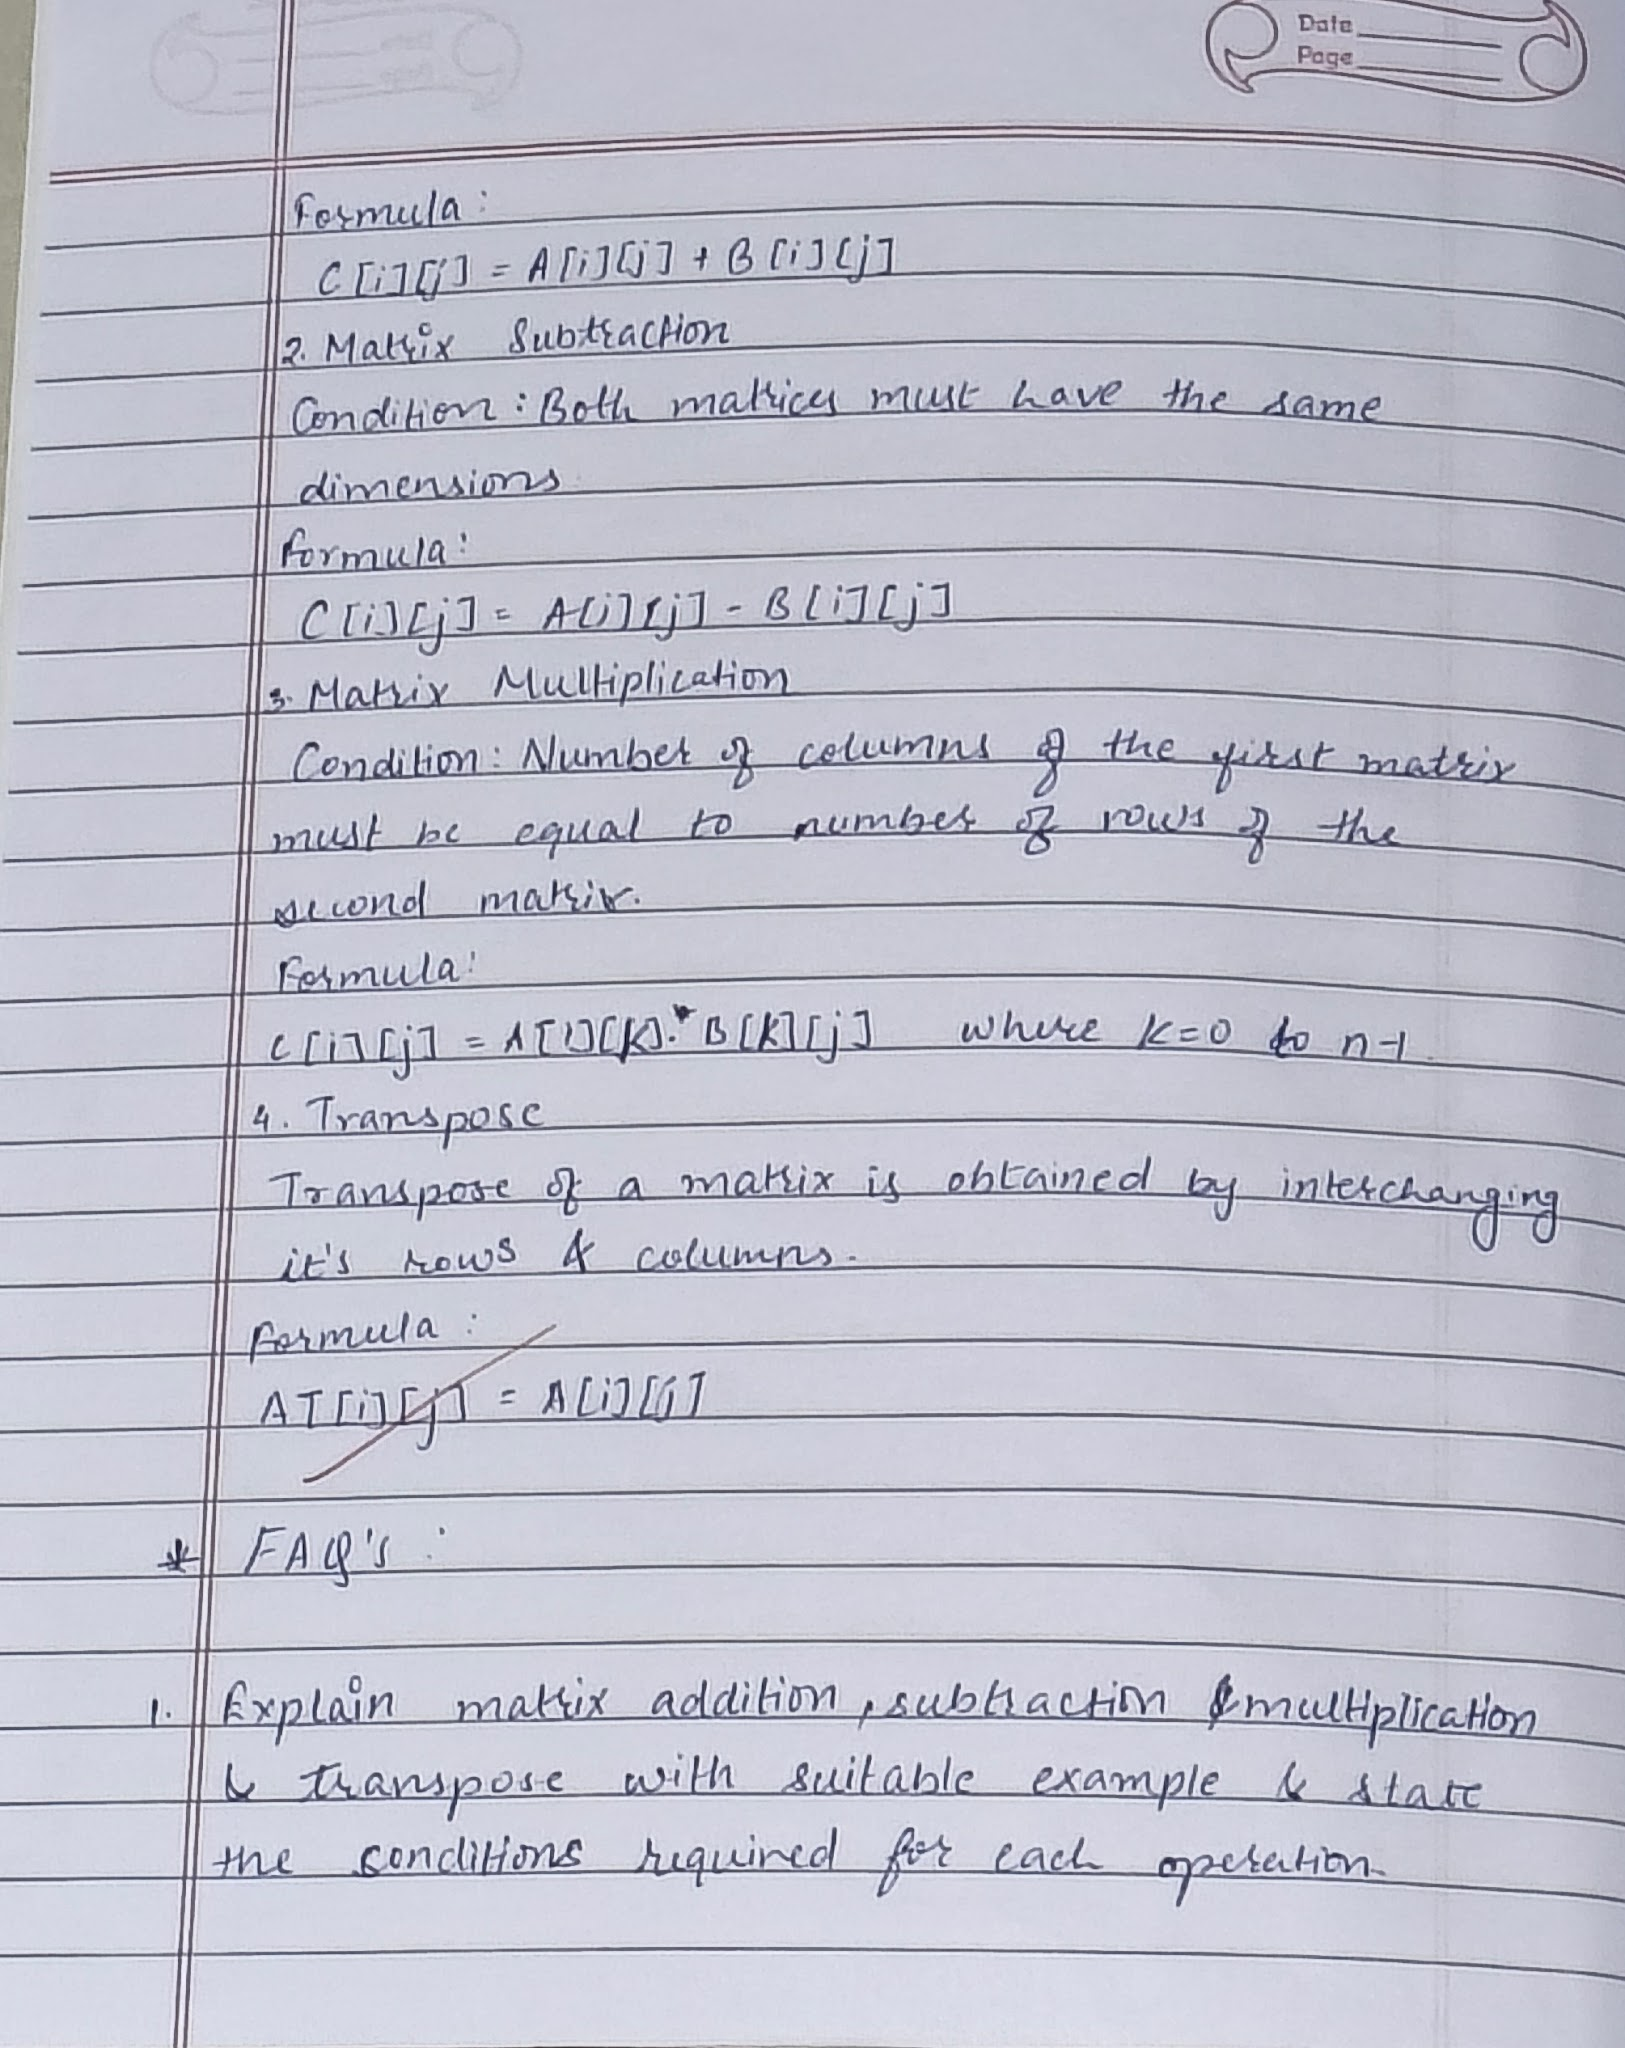 Date
Page
Formula:
C[i][j] = A[i][j] + B[i][j]
2. Matrix Subtraction
Condition: Both matrices must have the same
dimensions
formula:
C[i][j] = A[i][j] - B[i][j]
3. Matrix Multiplication
Condition: Number of columns of the first matrix
must be equal to number of rows of the
second matrix.
Formula:
C[i][j] = A[i][k].* B[k][j] where k=0 to n-1
4. Transpose
Transpose of a matrix is obtained by interchanging
it's rows & columns.
Formula:
AT[i][j] = A[i][j]
* FAQ's :
1. Explain matrix addition, subtraction & multiplication
& transpose with suitable example & state
the conditions required for each operation.